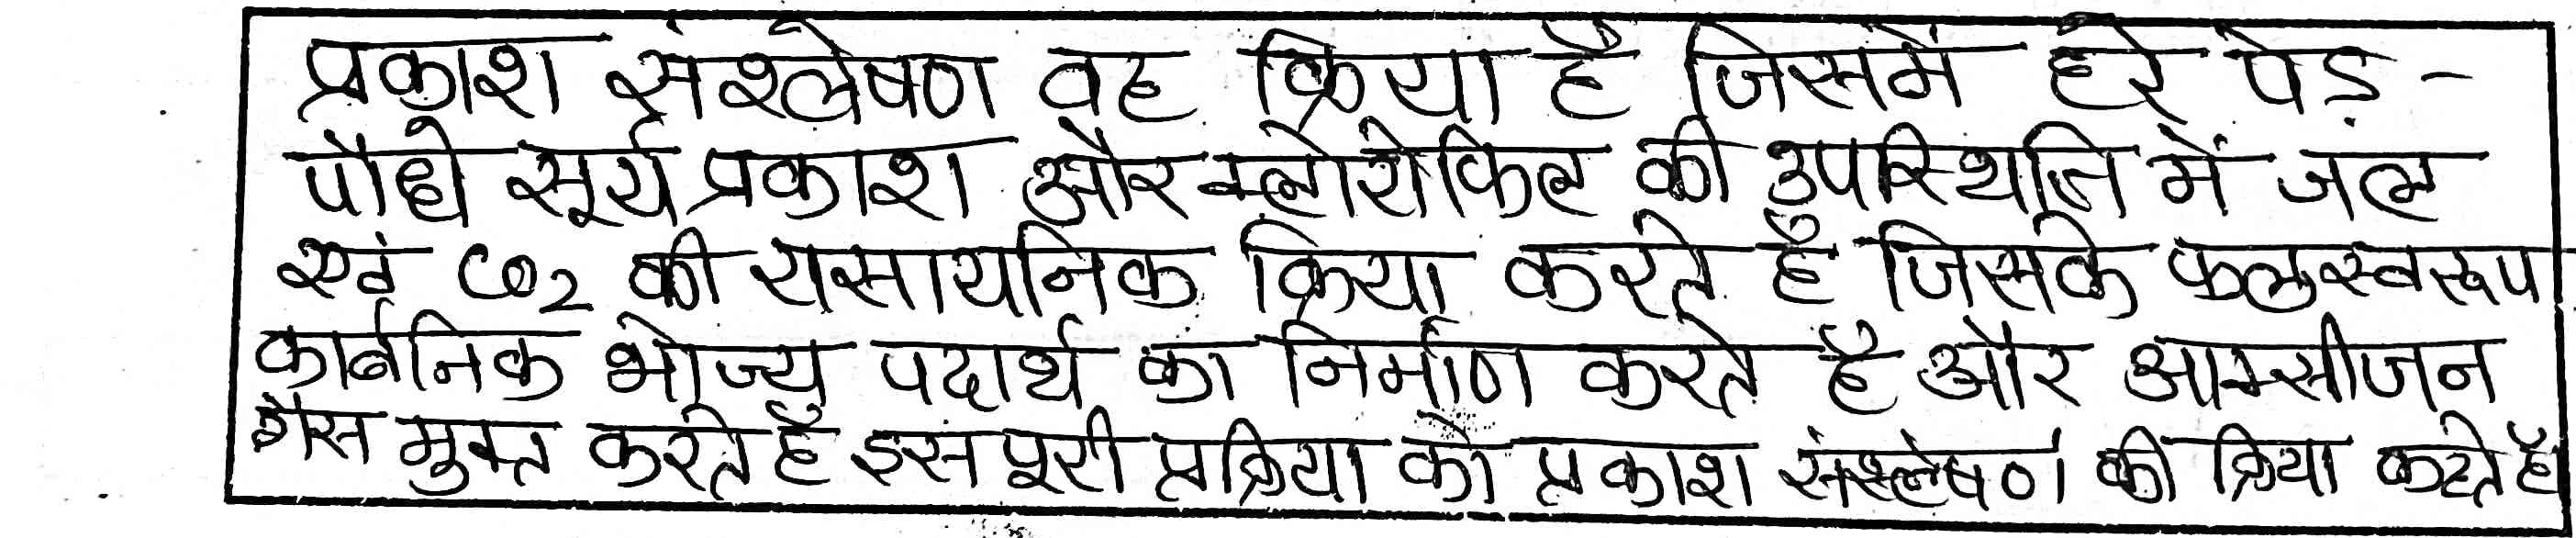 प्रकाश संश्लेषण वह क्रिया है जिसमें हरे पेड़-
पौधे सूर्य प्रकाश और क्लोरोफिल की उपस्थिति में जल
एवं CO2 की रासायनिक क्रिया करते हैं जिसके फलस्वरूप
कार्बनिक भोज्य पदार्थ का निर्माण करते हैं और आक्सीजन
गैस मुक्त करते हैं इस पूरी प्रक्रिया को प्रकाश संश्लेषण की क्रिया कहते हैं